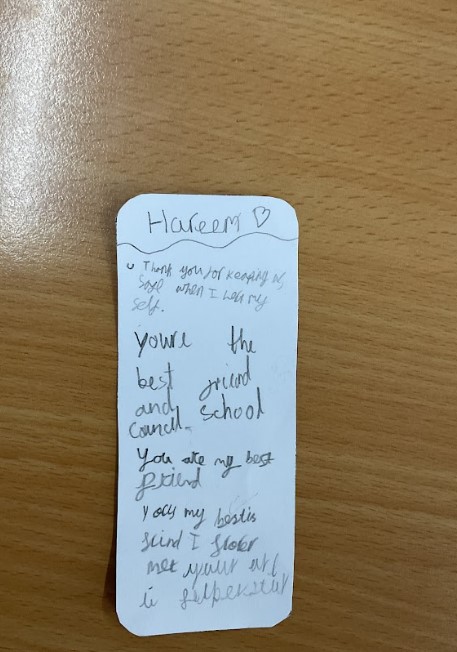 Hareem ♡
Thank you for keeping us
safe when I hea my
self.
youre the
best friend
and school
council.
You are my best
friend
my bestis
I